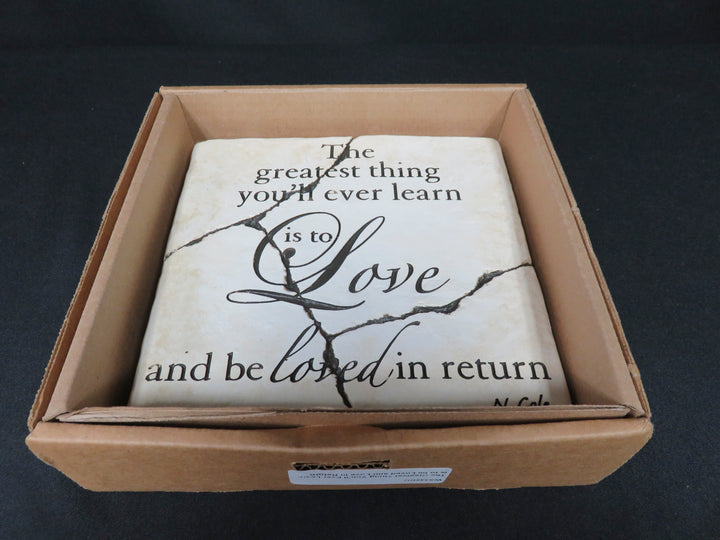 The
greatest thing
you'll ever learn
is to
Love
and be loved in return
N. Cole